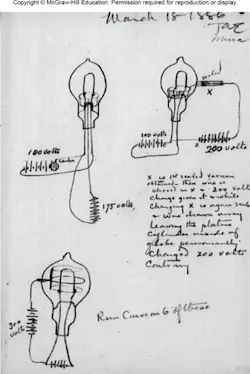 Copyright © McGraw-Hill Education. Permission required for reproduction or display.
March 13-1886
TAE
Mina
sealed
100 volts
100 volts
200 volts
175 volts
X is 1st sealed vacuum
obtained then wire is
closed in X & 200 volts
charge given it & while
charging X is again sealed
& wire drawn away
leaving the platina
cylinder inside of
globe permanently
Charged 200 volts
Contrary
300
volts
Run Curve on 6 of these